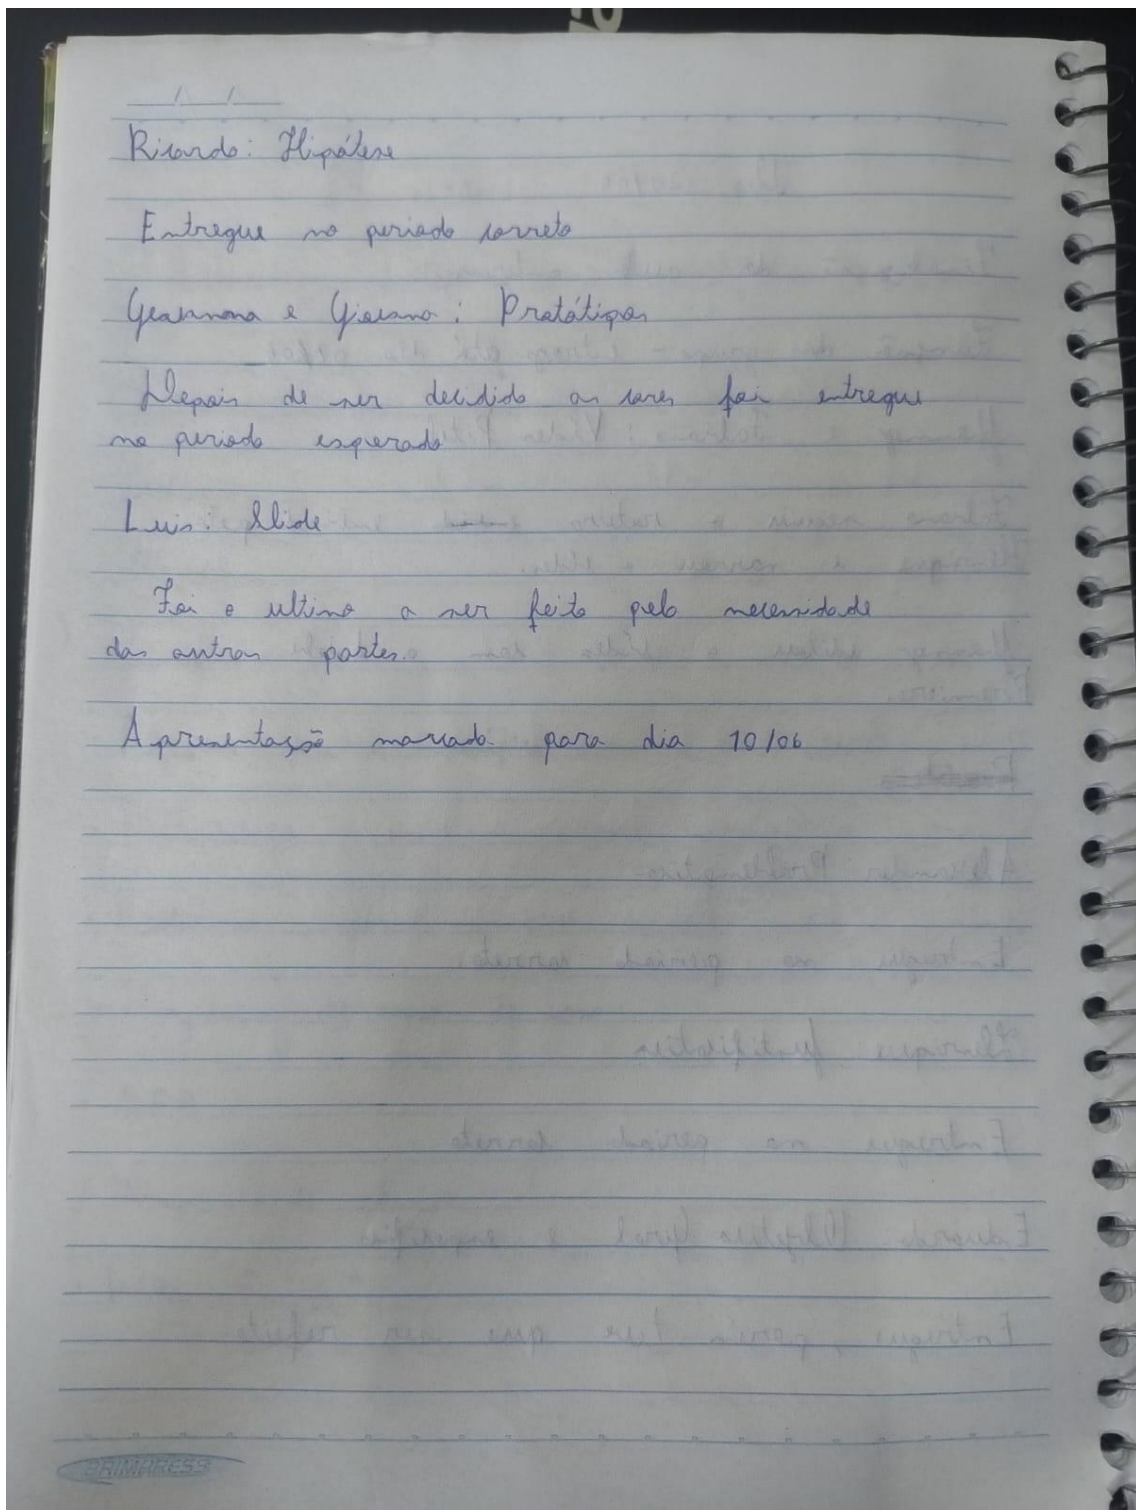 Ricardo: Hipótese
Entregue no periodo correto
e Giovana: Protótipos
Depois de ser decidido as cores foi entregue
no periodo esperado
Luis: Slide
Foi o ultimo a ser feito pelo necessidade
das outras partes.
Apresentação marcado para dia 10/06
BRIMPRESS